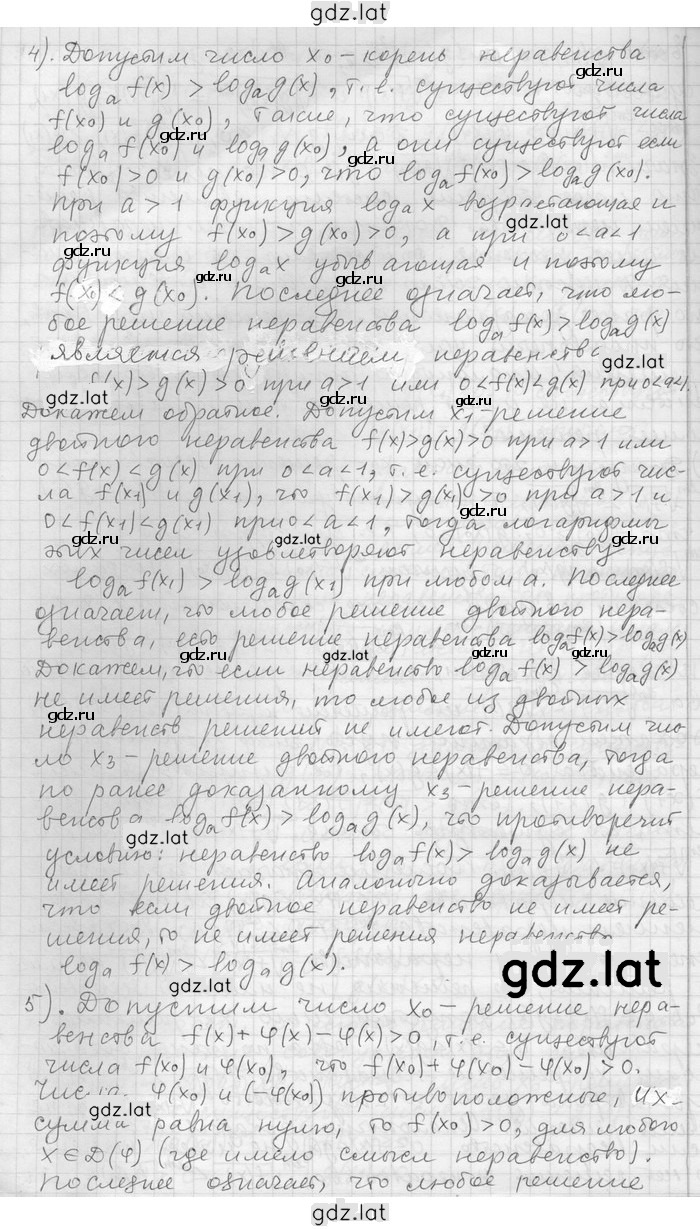 gdz.lat
4). Допустим число x₀ – корень неравенства
logₐ f(x) > logₐ g(x), т.е. существуют числа
f(x₀) и g(x₀), такие, что существуют числа
logₐ f(x₀) и logₐ g(x₀), а они существуют если
f(x₀)>0 и g(x₀)>0, что logₐ f(x₀)>logₐ g(x₀).
При a>1 функция logₐ x возрастающая и
поэтому f(x₀)>g(x₀)>0, а при 0<a<1
функция logₐ x убывающая и поэтому
f(x₀)<g(x₀). Последнее означает, что лю-
бое решение неравенства logₐ f(x)>logₐ g(x)
является решением неравенства
f(x)>g(x)>0 при a>1 или 0<f(x)<g(x) при 0<a<1.
Докажем обратное. Допустим x₁ – решение
двойного неравенства f(x)>g(x)>0 при a>1 или
0<f(x)<g(x) при 0<a<1, т.е. существуют чис-
ла f(x₁) и g(x₁), что f(x₁)>g(x₁)>0 при a>1 и
0<f(x₁)<g(x₁) при 0<a<1, тогда логарифмы
этих чисел удовлетворяют неравенству
logₐ f(x₁) > logₐ g(x₁) при любом a. Последнее
означает, что любое решение двойного нера-
венства, есть решение неравенства logₐ f(x)>logₐ g(x)
Докажем, что если неравенство logₐ f(x) > logₐ g(x)
не имеет решения, то любое из двойных
неравенств решений не имеют. Допустим чис-
ло x₃ – решение двойного неравенства, тогда
по ранее доказанному x₃ – решение нера-
венства logₐ f(x) > logₐ g(x), что противоречит
условию: неравенство logₐ f(x) > logₐ g(x) не
имеет решения. Аналогично доказывается,
что если двойное неравенство не имеет ре-
шения, то не имеет решения неравенство
logₐ f(x) > logₐ g(x).
gdz.lat
5). Допустим число x₀ – решение нера-
венства f(x)+φ(x)–φ(x)>0, т.е. существуют
числа f(x₀) и φ(x₀), что f(x₀)+φ(x₀)–φ(x₀)>0.
Числа φ(x₀) и (–φ(x₀)) противоположные, их
сумма равна нулю, то f(x₀)>0, для любого
x∈D(φ) (где имело смысл неравенство).
Последнее означает, что любое решение
gdz.lat